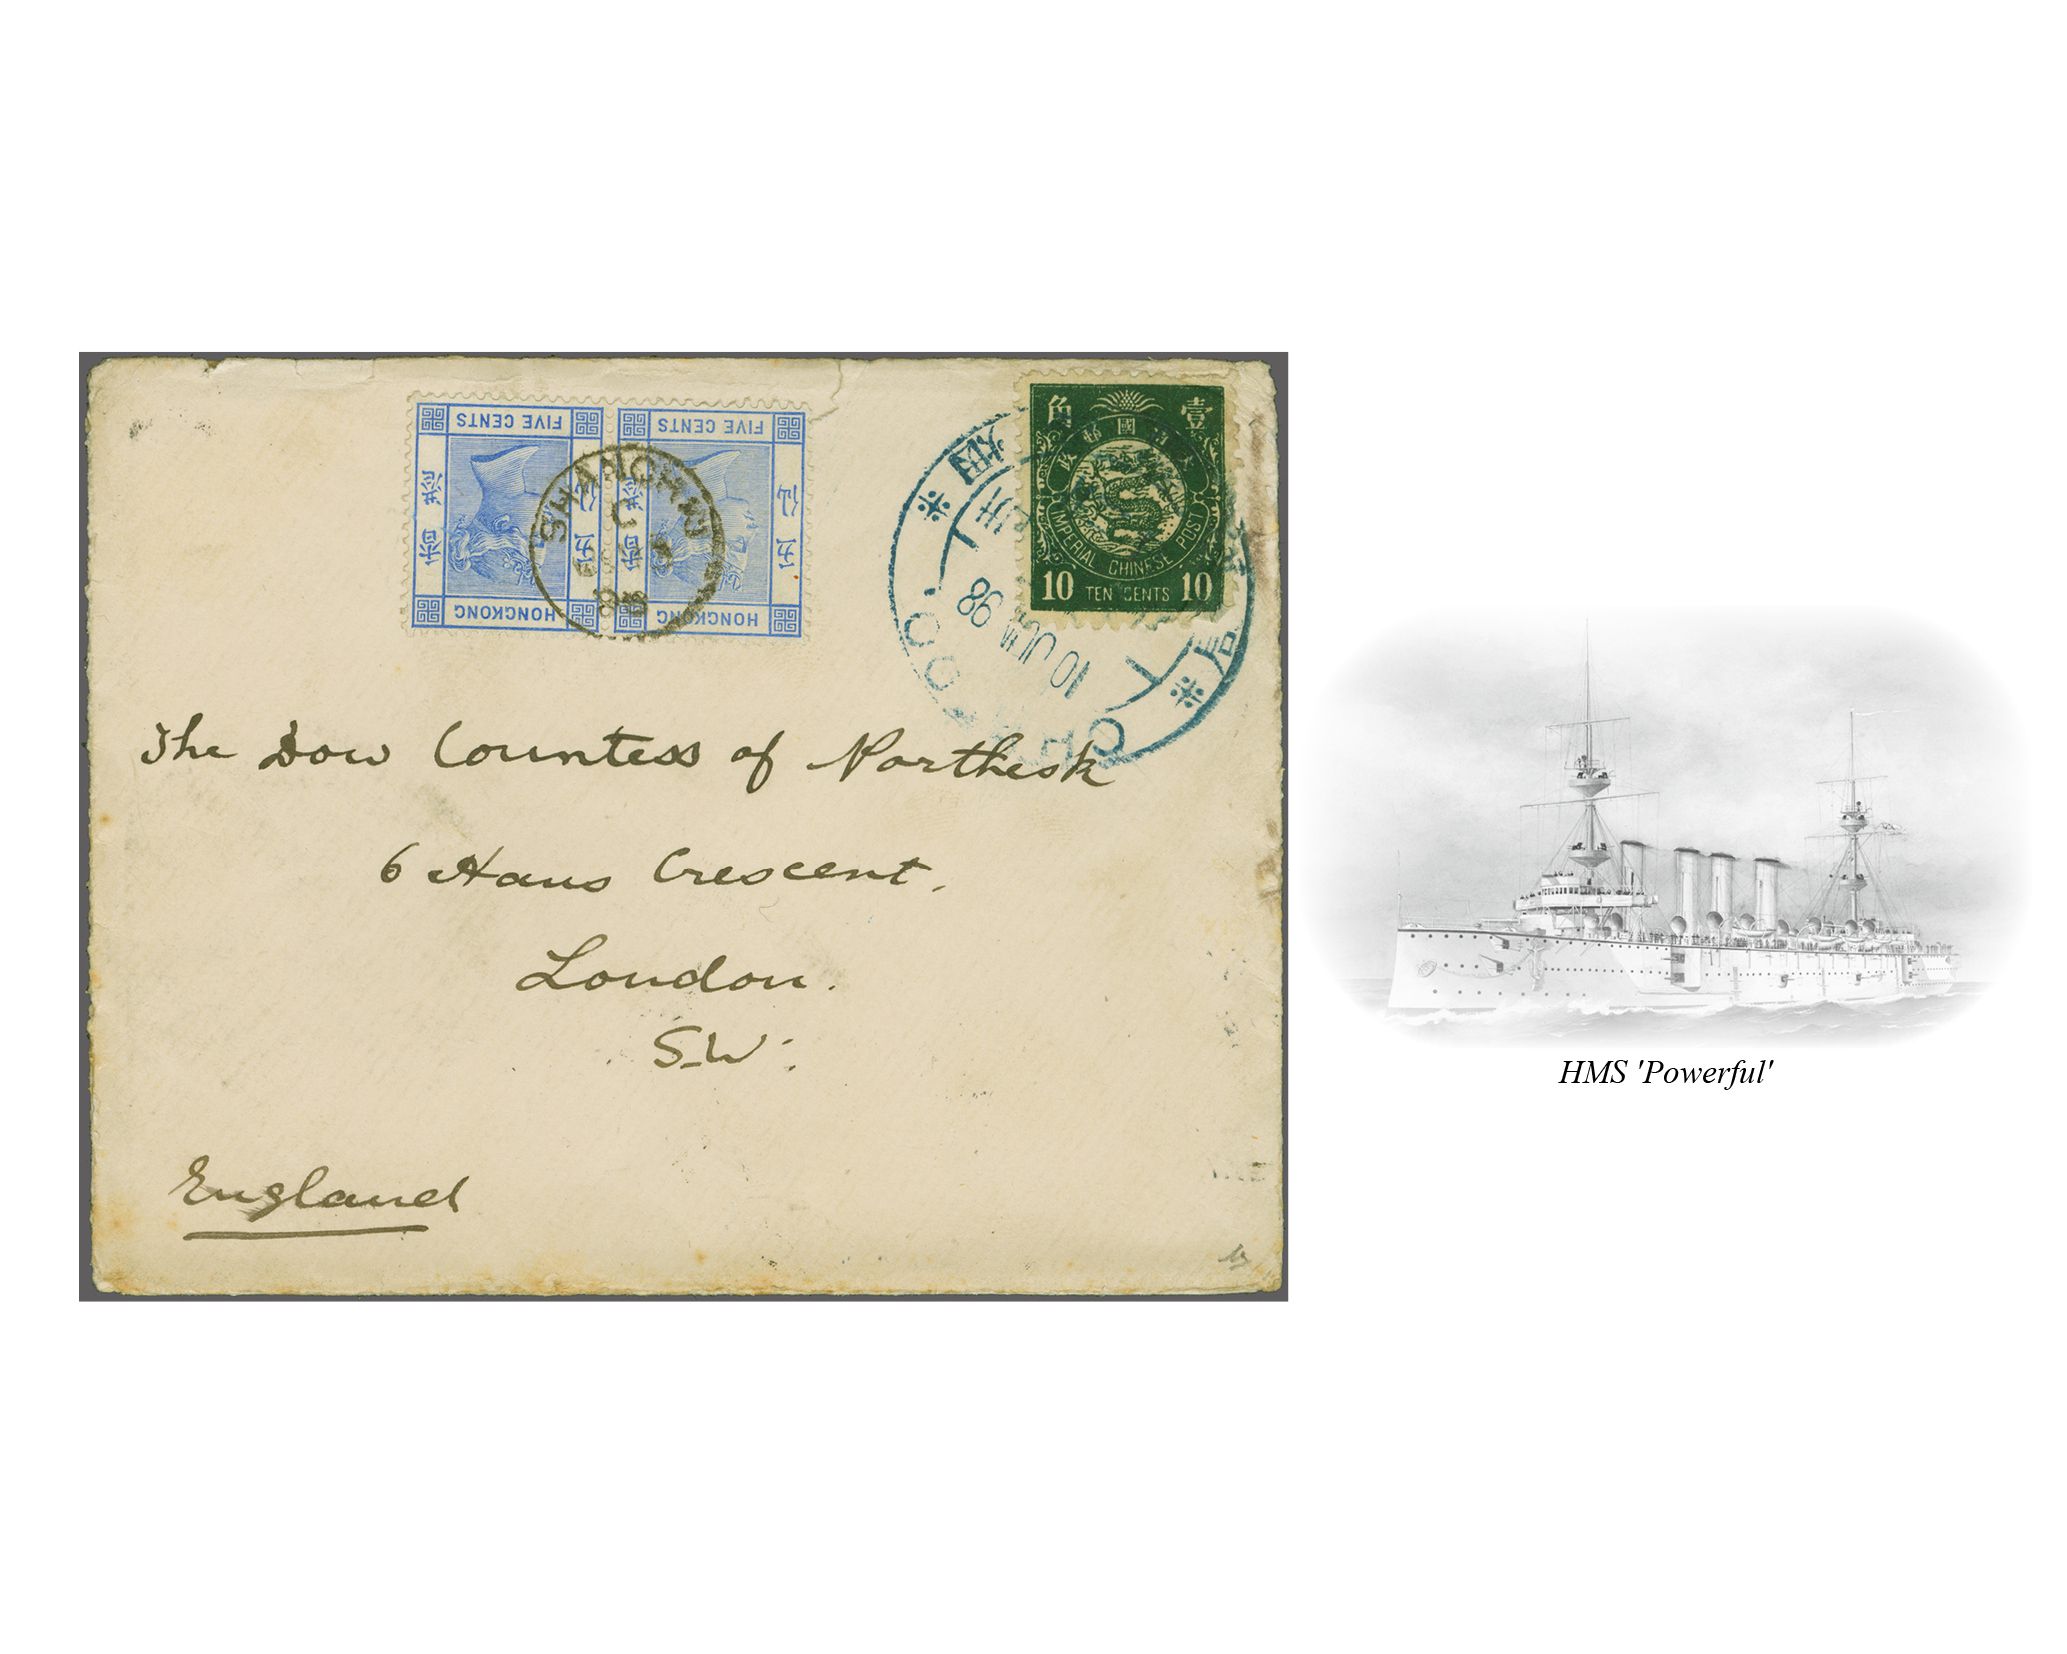 FIVE CENTS FIVE CENTS
HONGKONG HONGKONG
SHANGHAI
C
98
角 壹
IMPERIAL CHINESE POST
10 TEN CENTS 10
10 JUN 98
The Dow Countess of Northesk
6 Hans Crescent.
London.
S.W.
England
HMS 'Powerful'